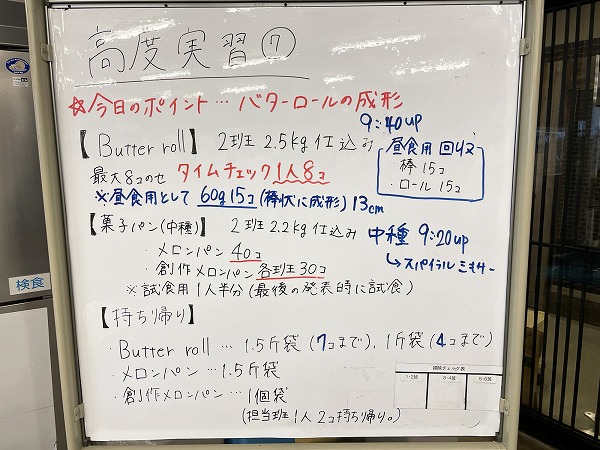 高度実習⑦
☆今日のポイント…バターロールの成形
9:40up
【Butter roll】 2班 2.5kg仕込み
最大8コのせ タイムチェック1人8コ
※昼食用として 60g 15コ(棒状に成形) 13cm
昼食用 回収
・棒 15コ
・ロール 15コ
【菓子パン(中種)】 2班 2.2kg仕込み 中種 9:20up
↳スパイラルミキサー
・メロンパン 40コ
・創作メロンパン 各班30コ
※試食用1人半分(最後の発表時に試食)
検食
【持ち帰り】
・Butter roll … 1.5斤袋(7コまで)、1斤袋(4コまで)
・メロンパン … 1.5斤袋
・創作メロンパン … 1個袋
(担当班1人2コ持ち帰り。)
掃除チェック表
1・2班 3・4班 5・6班